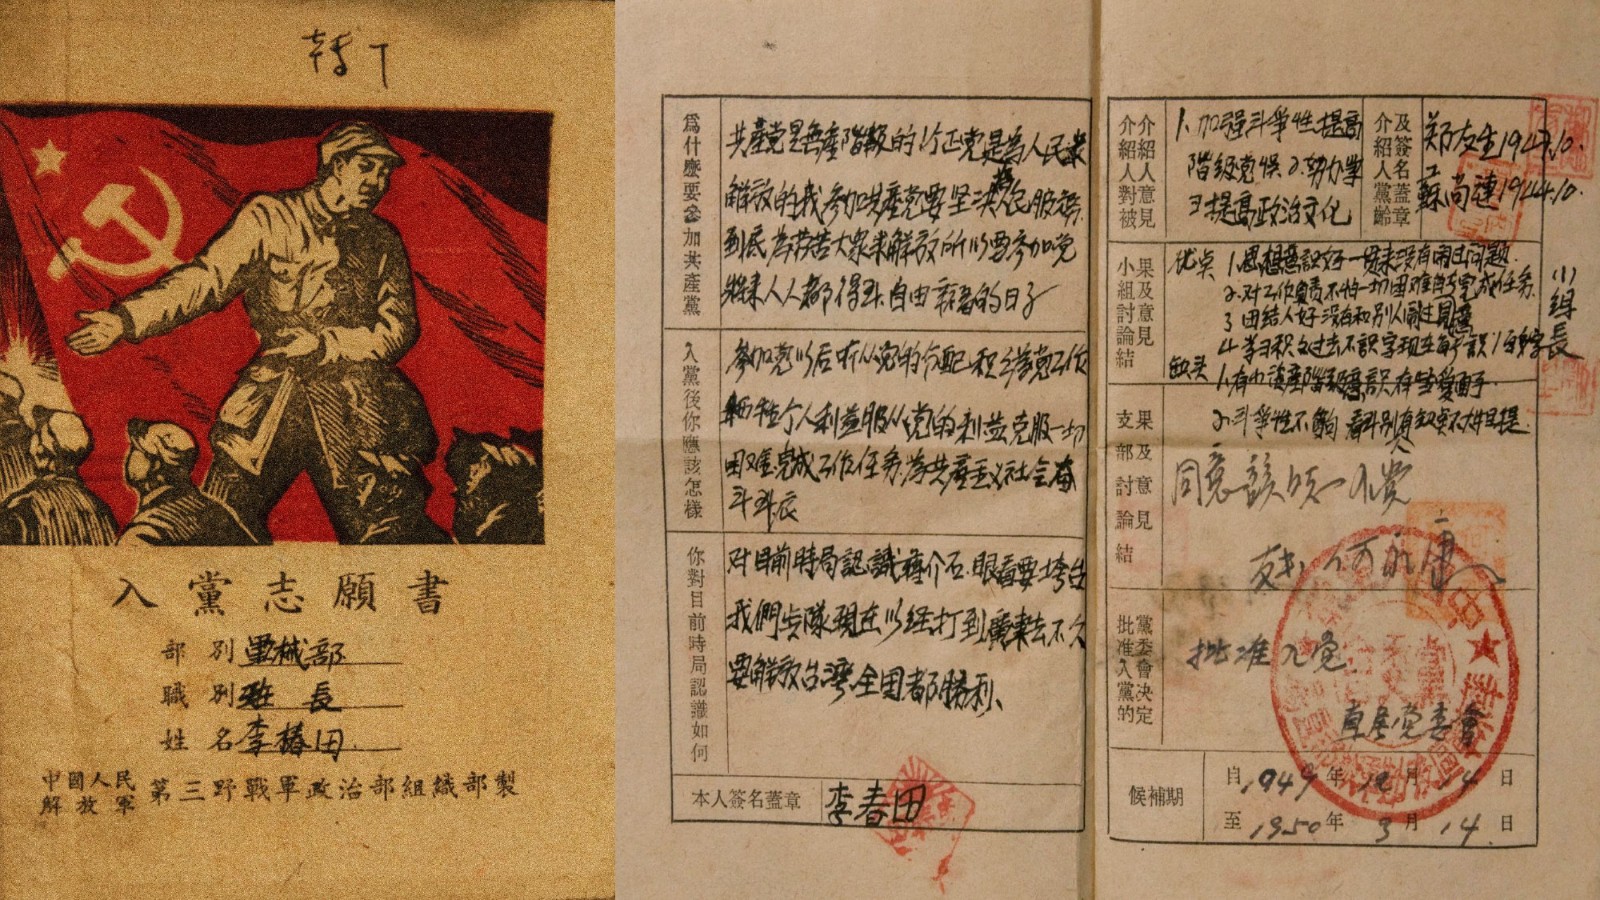 入黨志願書
部別 軍械部
職別 班長
姓名 李椿田
中國人民解放軍 第三野戰軍政治部組織部製
為什麼要參加共產黨
共產党是無產階級的行正党是為人民衆
解放的我參加共產党要坚决為人民服務
到底為劳苦大衆求解放所以要参加党
將来人人都得到自由 的日子
入黨後你應該怎樣
參加党以后听从党的分配积极為党工作
牺牲个人利益服从党的利益克服一切
困难完成工作任务為共產主义社会奋
斗到底
你對目前時局認識如何
对目前時局認識蒋介石眼看要垮台
我們部隊現在以经打到廣東去不久
要解放台灣全国都勝利、
本人簽名蓋章
李春田
介紹人對被介紹人意見
1.加强斗争性提高
階级觉悮2.努力学
习提高政治文化
介紹人黨齡及簽名蓋章
郑友生1947.10.
蘇尚連1944.10.
小組討論結果及意見
优点 1.思想意識好一贯来没有闹过问题.
2.对工作負责不怕一切困难能完成任务.
3 团结人好没有和别人闹过意見
4.学习积极过去不識字現在能識1百多字
缺点 1.有小资產階級意識存些爱面子.
2.斗争性不夠 看到别人有缺点不大胆提.
小組長
支部討論結果及意見
同意該員入党
支书: 何永康
黨委會决定批准入黨的
批准入党
直属党委會
候補期
自1949年12月14日
至1950年3月14.日